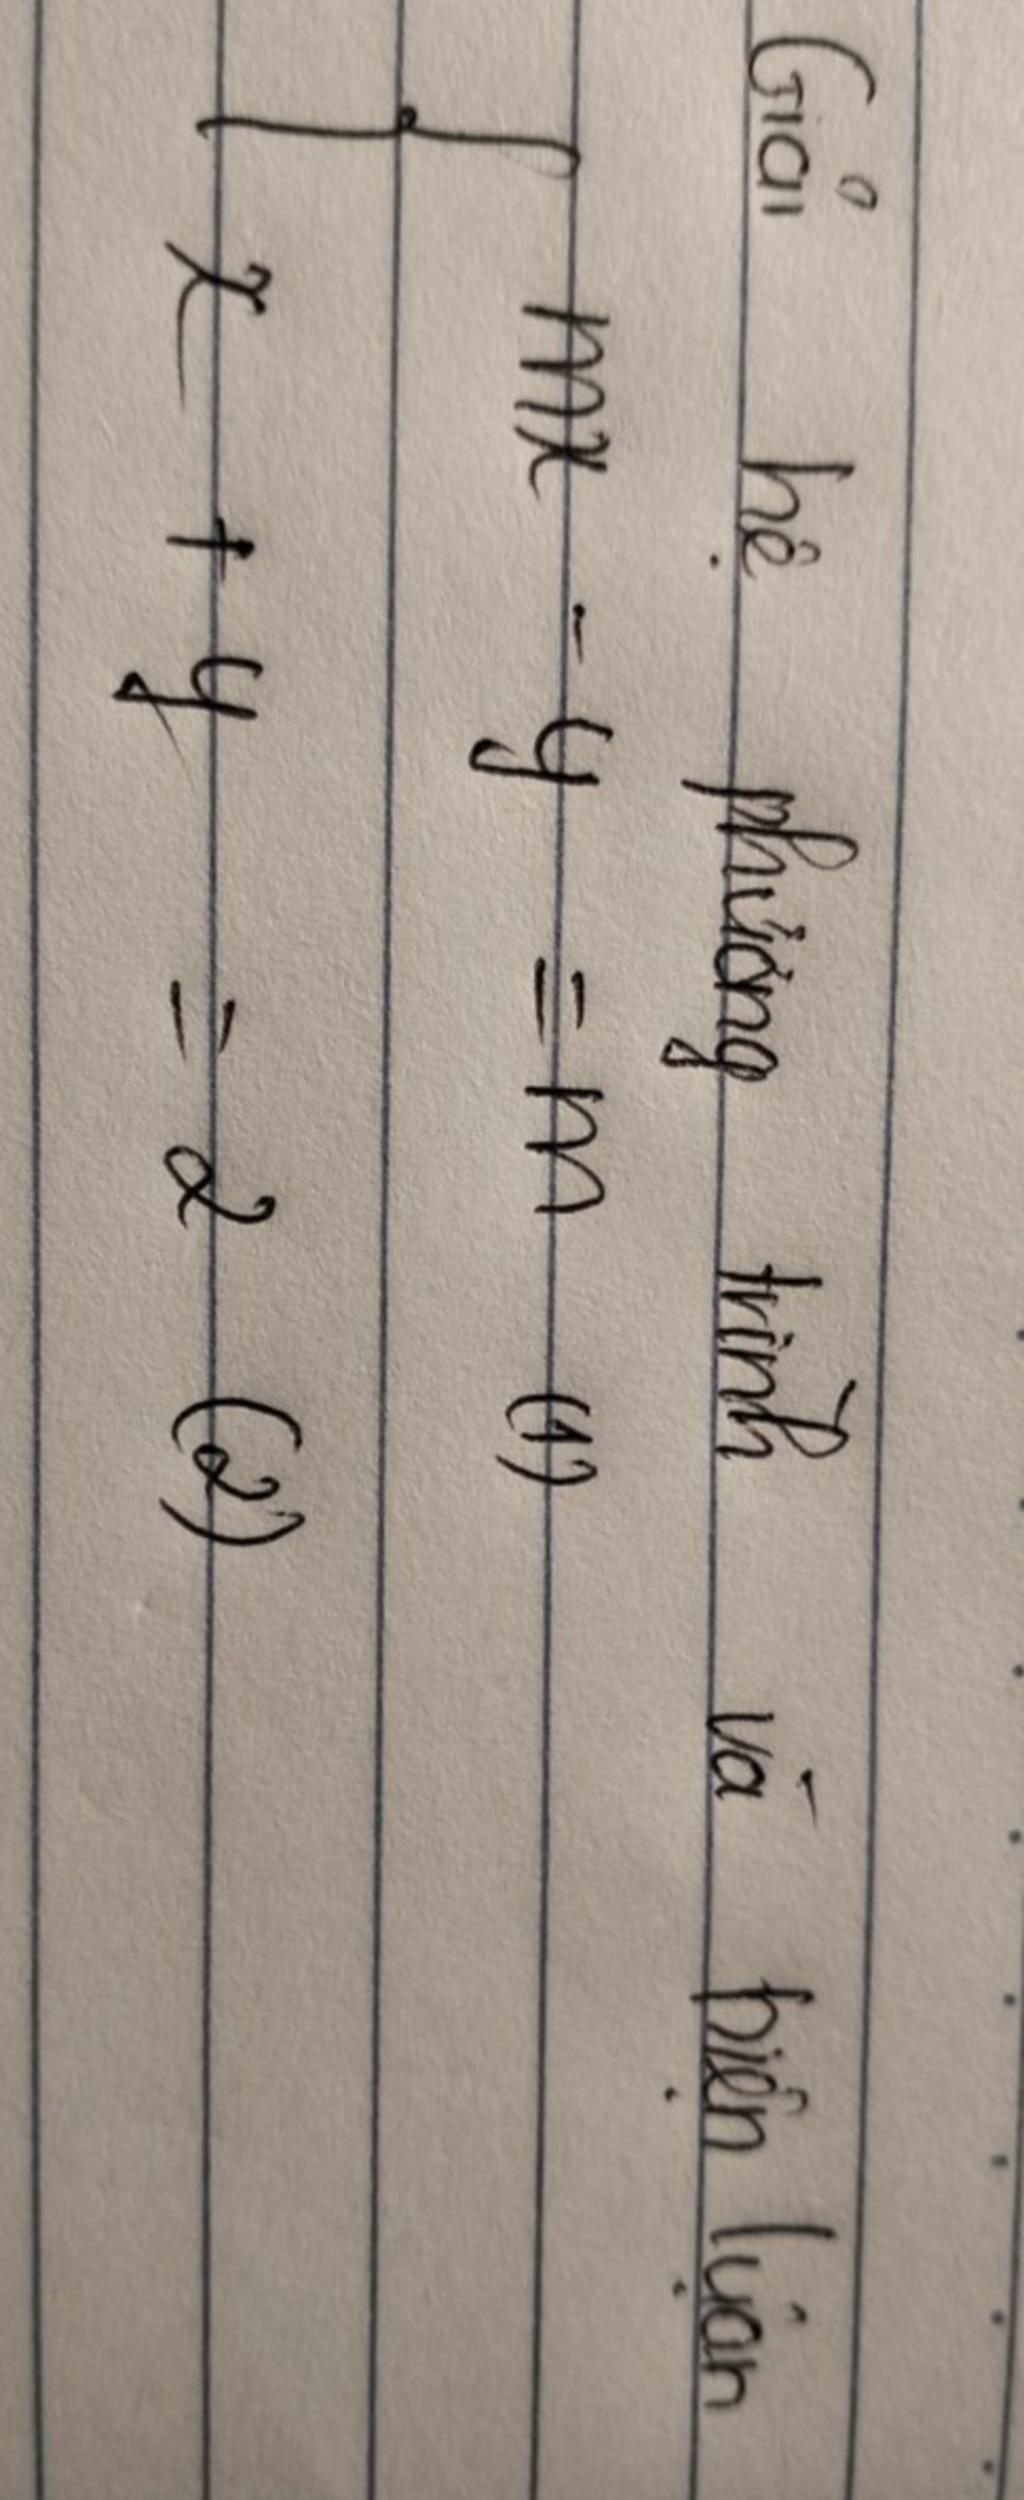 Giải hệ phương trình và biện luận
{ mx - y = m (1)
x + y = 2 (2)